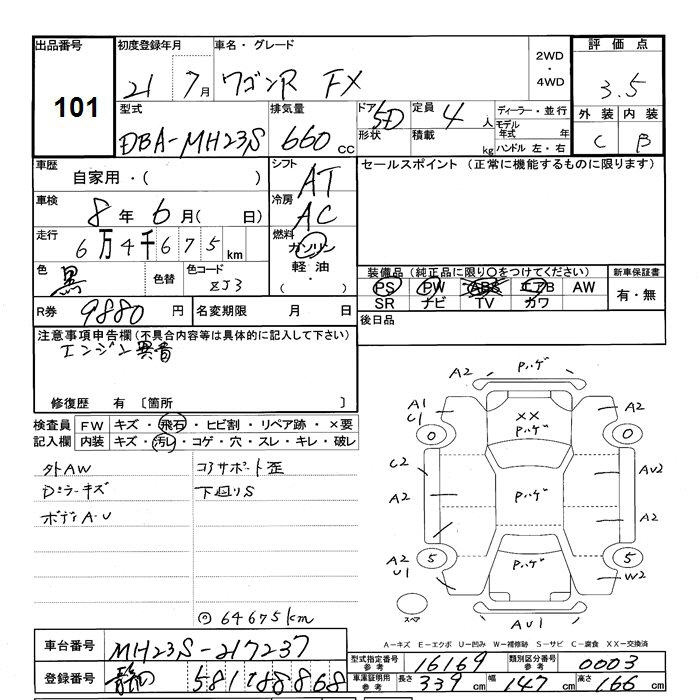 出品番号 初度登録年月 車名・グレード 2WD ・ 4WD 評価点
101 21 7月 ワゴンR FX 3.5
外装 内装
C B
型式 排気量 ドア 形状 定員 積載 ディーラー・並行
DBA-MH23S 660cc 5D 4人 kg モデル年式 年 ハンドル 左・右
車歴 シフト セールスポイント(正常に機能するものに限ります)
自家用・( ) AT
車検 冷房
8年6月( 日) AC
走行 燃料
6万4千675km ガソリン 軽油・
色 色替 色コード
黒 ZJ3
装備品(純正品に限り○をつけてください) 新車保証書
PS PW ABS エアB AW 有・無
SR ナビ TV カワ
R券 9880円 名変期限 月 日 後日品
注意事項申告欄(不具合内容等は具体的に記入して下さい)
エンジン異音
修復歴 有〔箇所 〕
検査員 FW キズ・飛石・ヒビ割・リペア跡・×要
記入欄 内装 キズ・汚レ・コゲ・穴・スレ・キレ・破レ
外AW コアサポート歪
Dミラーキズ 下回りS
ボディA-U
64675km
A2 Pハゲ
A1 C1 XX Pハゲ A2
0 0
C2 AU2
A2 Pハゲ A2
A2 U1 5 Pハゲ 5 W2
スペア AU1
A-キズ E-エクボ U-凹み W-補修跡 S-サビ C-腐食 XX-交換済
車台番号 MH23S-217237
型式指定番号 参考 16169 類別区分番号 参考 0003
登録番号 静岡 581
車庫証明用 参考 長さ 339cm 幅 147cm 高さ 166cm